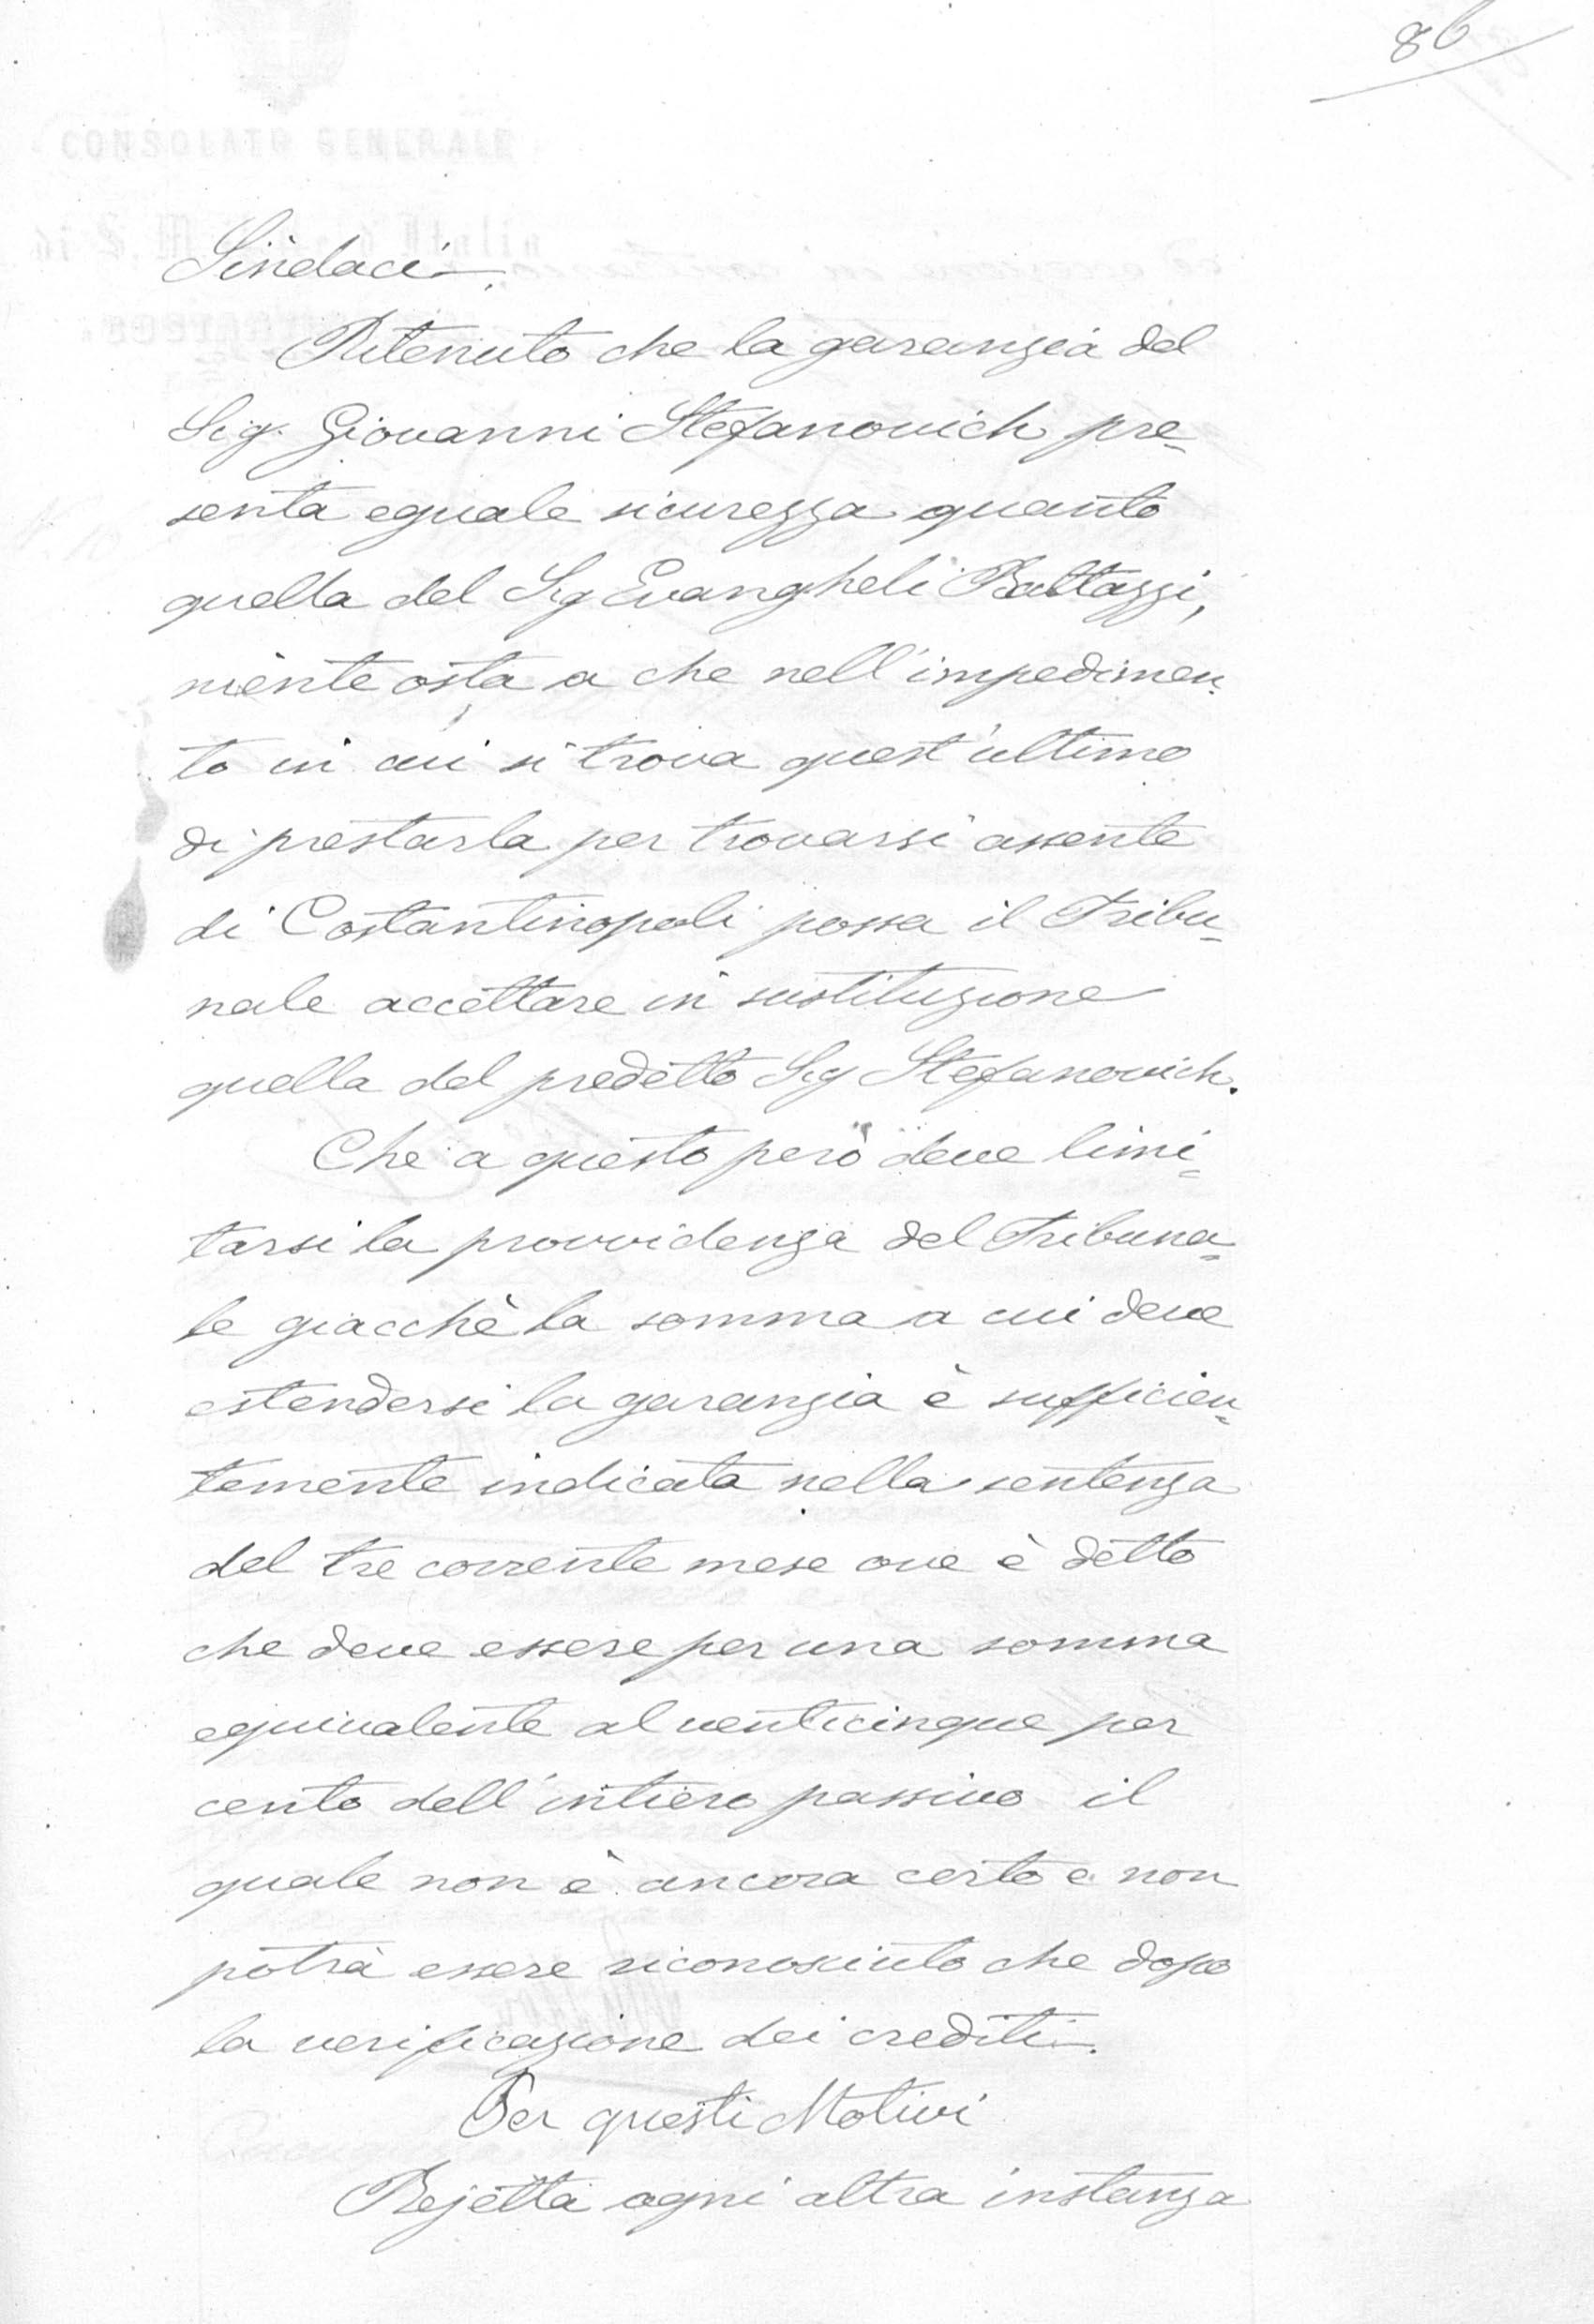 86
CONSOLATO GENERALE
di S. M. d'Italia
Sindaci.
Ritenuto che la garanzia del
Sig. Giovanni Stefanovich pre-
senta eguale sicurezza quanto
quella del Sig Evangheli Baltazzi,
niente osta a che nell'impedimen-
to in cui si trova quest'ultimo
di prestarla per trovarsi assente
di Costantinopoli possa il Tribu-
nale accettare in sustituzione
quella del predetto Sig Stefanovich.
Che a questo però deve limi-
tarsi la provvidenza del Tribuna-
le giacchè la somma a cui deve
estendersi la garanzia è sufficien-
temente indicata nella sentenza
del tre corrente mese ove è detto
che deve essere per una somma
equivalente al venticinque per
cento dell'intiero passivo il
quale non è ancora certo e non
potrà essere riconosciuto che dopo
la verificazione dei crediti.
Per questi Motivi
Rejetta ogni altra instanza